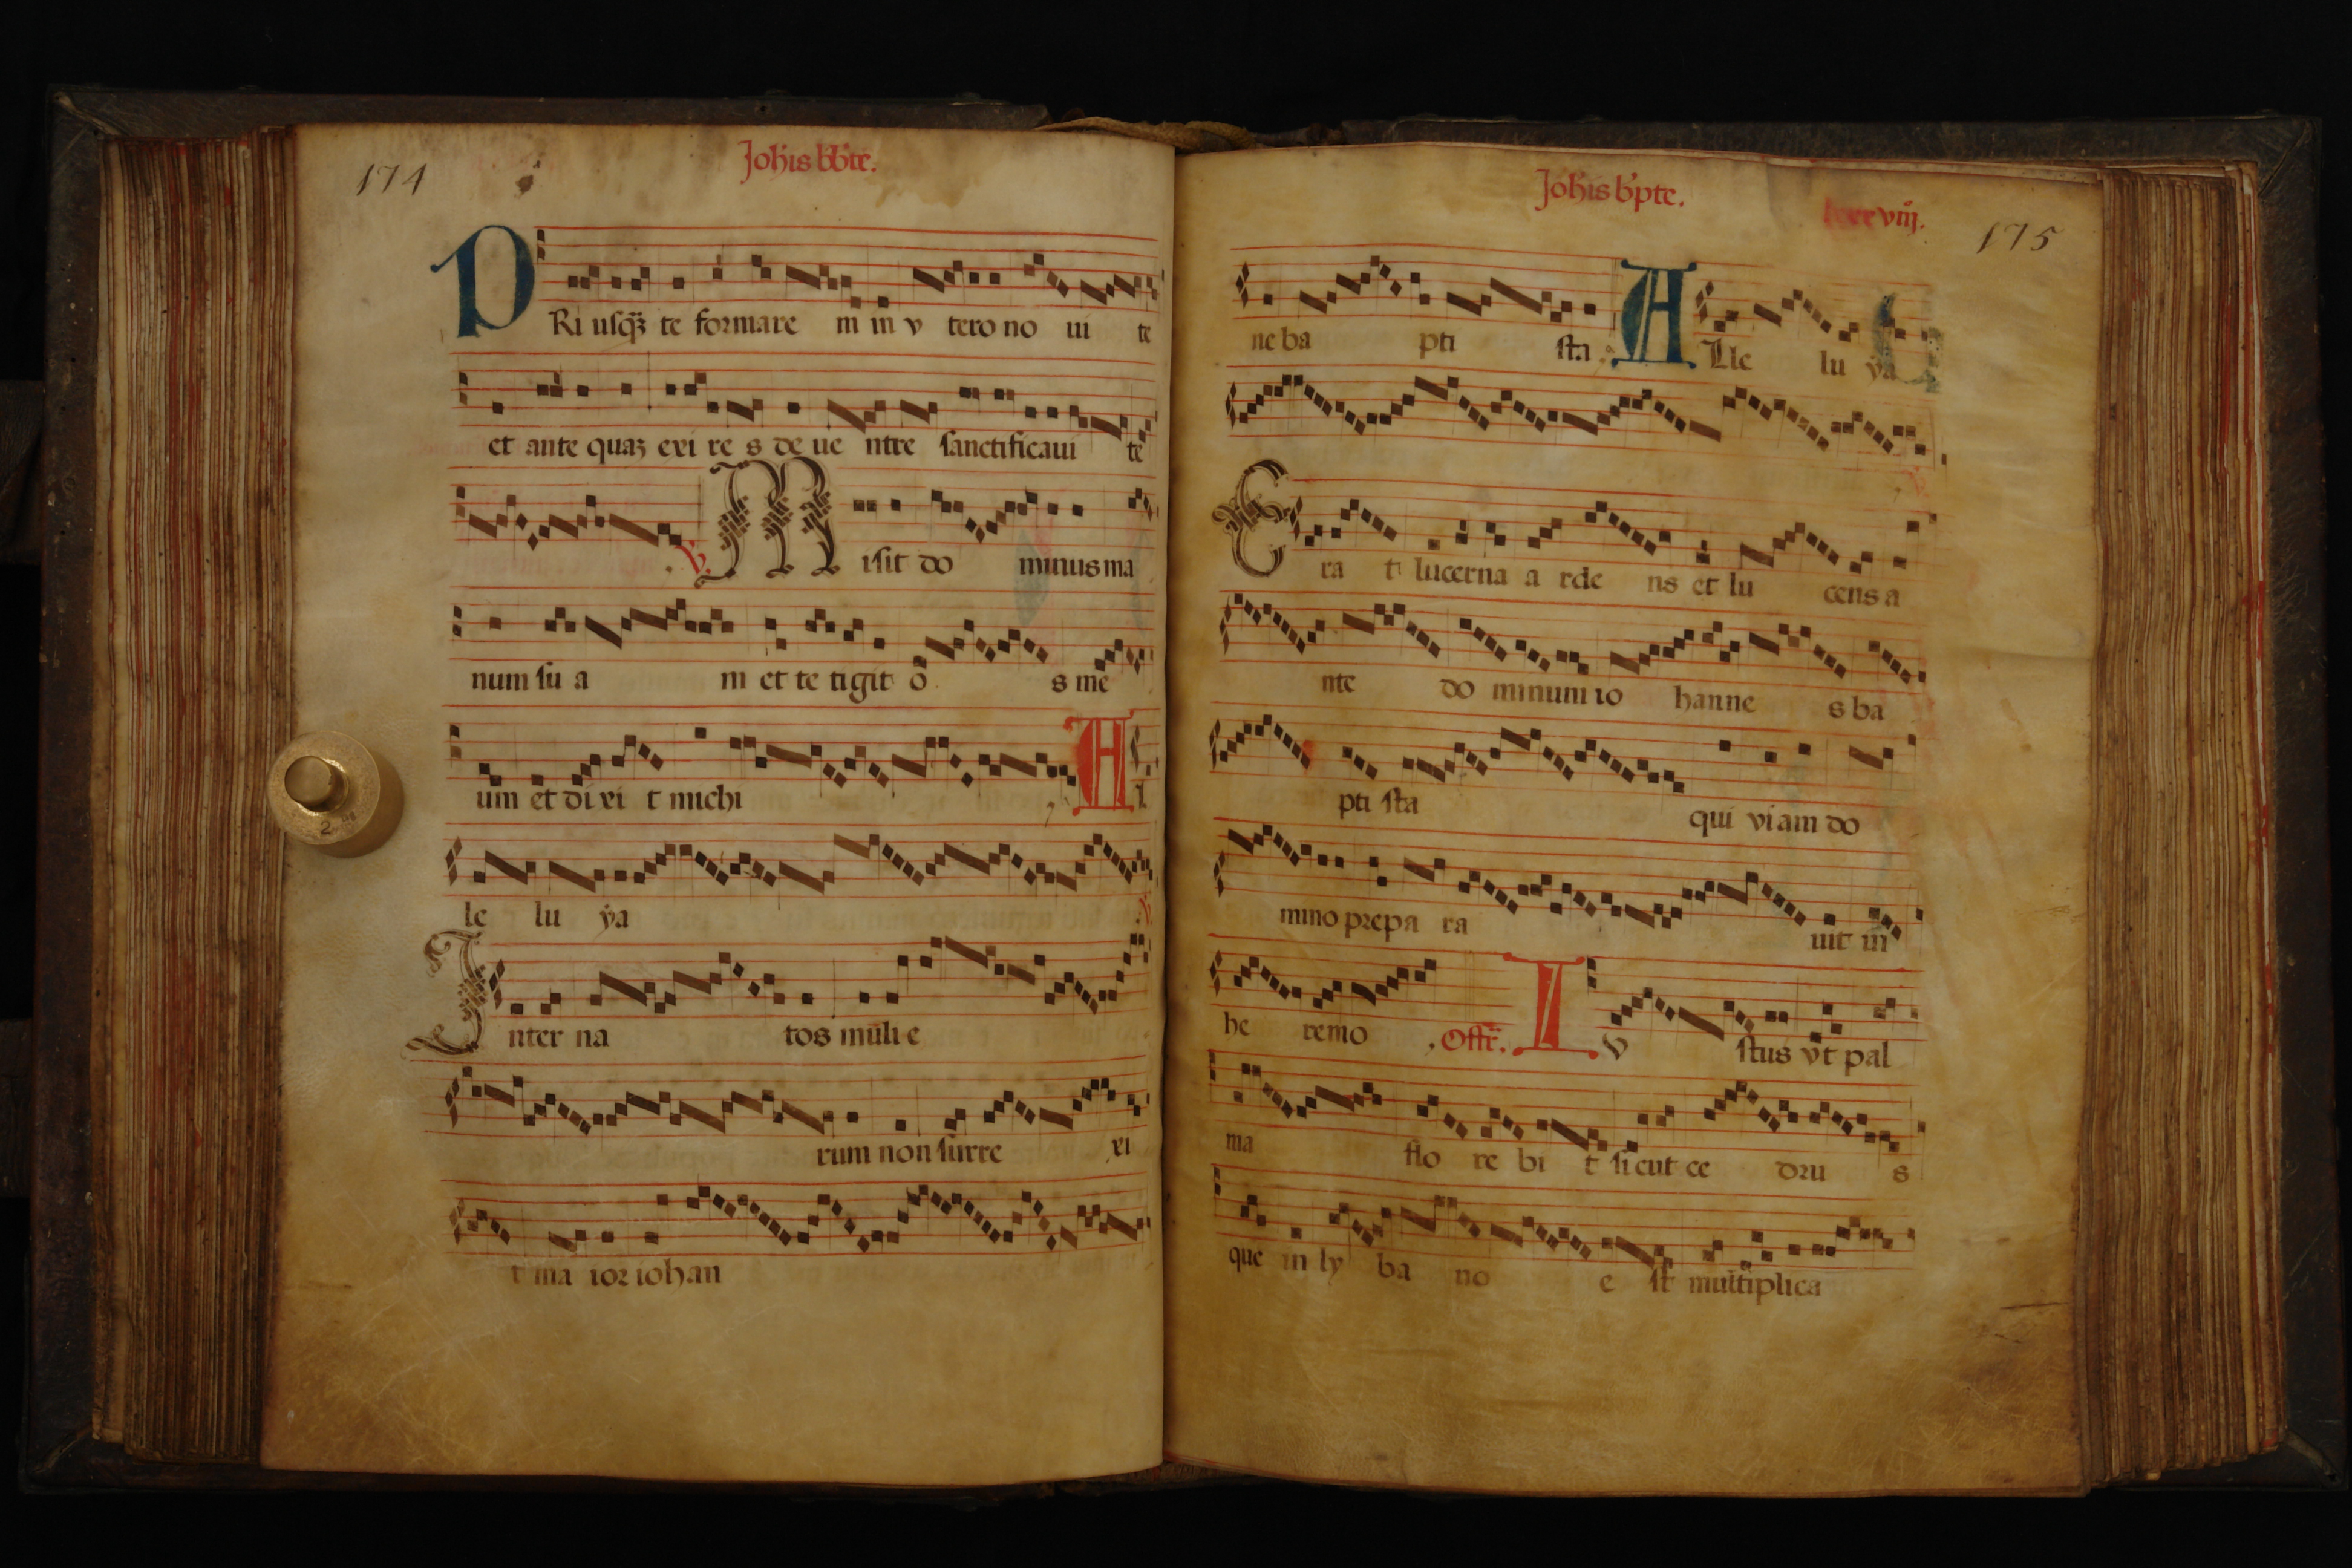 174
Joh̄is bb̄te.
PRi uſqꝫ te formare m in v tero no ui te
et ante quaꝫ exi re s de ue ntre ſanctificaui te
℣. Miſit do minus ma
num ſu a m et te tigit o s me
um et di xi t michi Al
le lu ya ℣.
Inter na tos mulie
rum non ſurre xi
t ma ior iohan
Joh̄is bp̄te.
viij. 175
ne ba pti ſta. ALle lu ya
Era t lucerna a rde ns et lu cens a
nte do minum io hanne s ba
pti ſta qui viam do
mino prepa ra uit in
he remo Offr̄. Iv ſtus vt pal
ma flo re bi t ſicut ce dru s
que in ly ba no e ſt multiplica